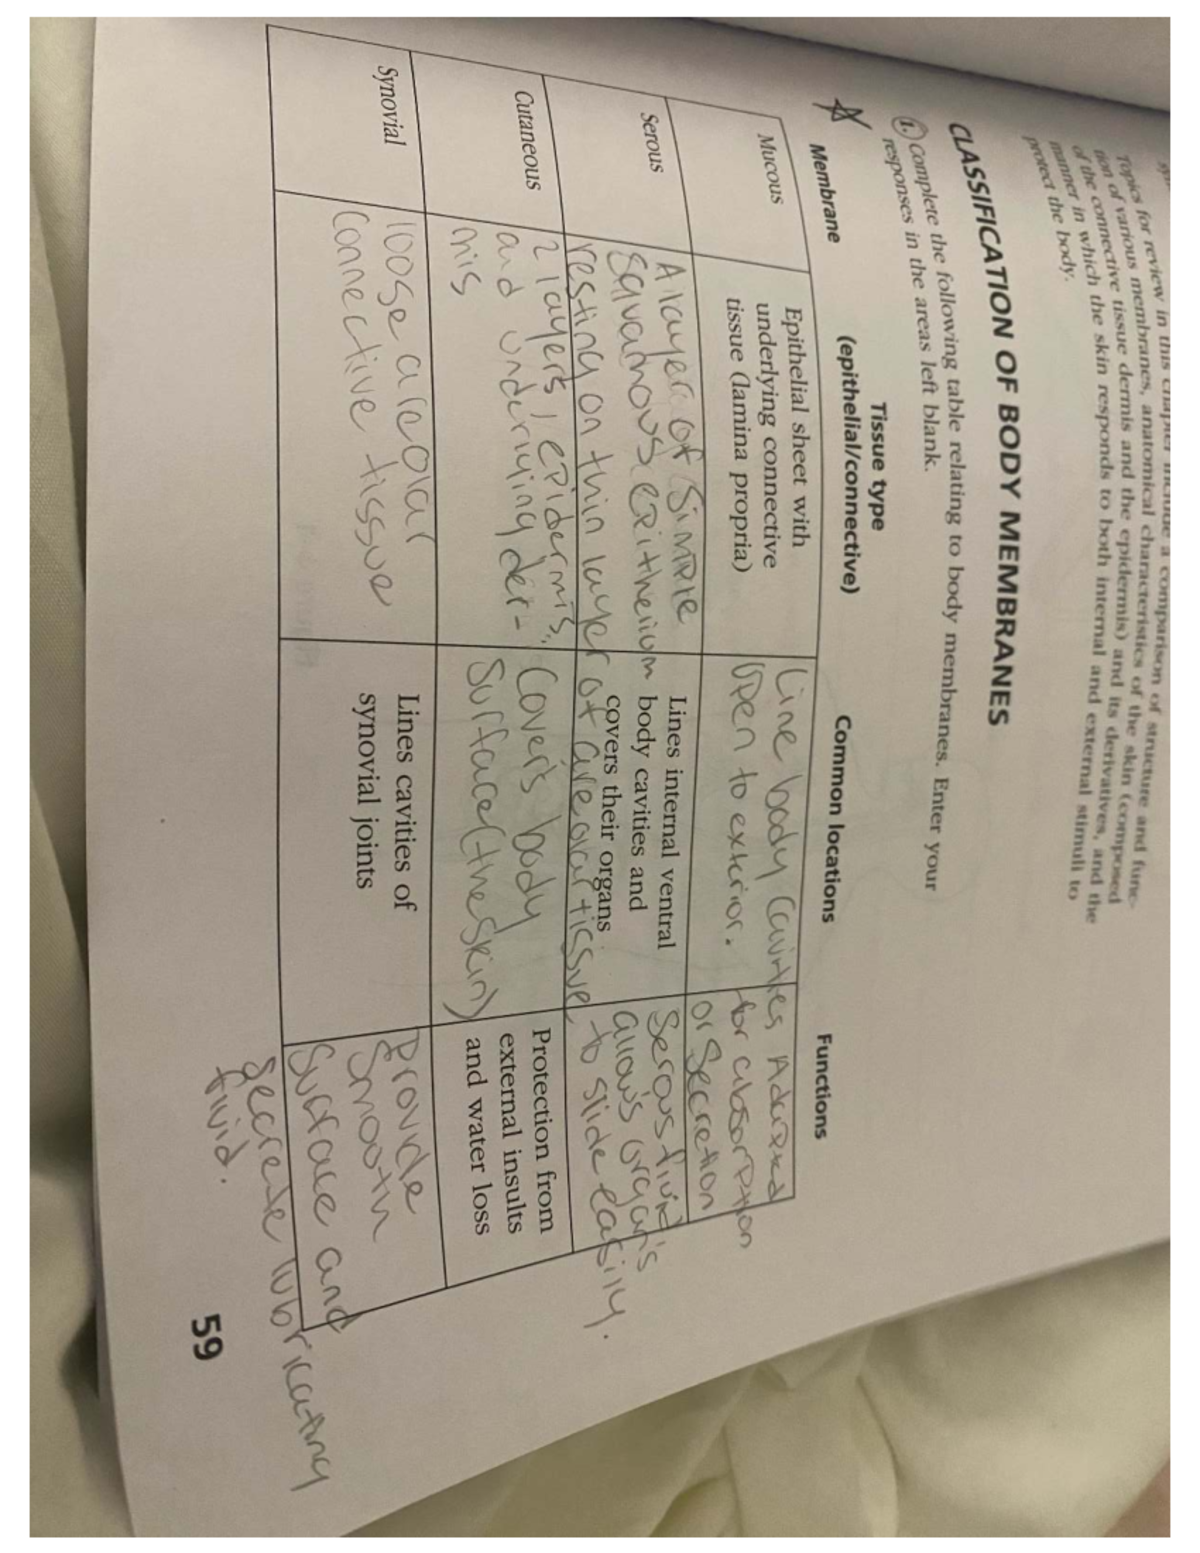 Topics for review in this chapter include a comparison of structure and func-
tion of various membranes, anatomical characteristics of the skin (composed
of the connective tissue dermis and the epidermis) and its derivatives, and the
manner in which the skin responds to both internal and external stimuli to
protect the body.
CLASSIFICATION OF BODY MEMBRANES
1. Complete the following table relating to body membranes. Enter your
responses in the areas left blank.
Membrane
Tissue type
(epithelial/connective)
Common locations
Functions
Mucous
Epithelial sheet with
underlying connective
tissue (lamina propria)
Line body cavities
open to exterior.
Adapted
for absorption
or secretion
Serous
A layer of simple
squamous epithelium
resting on thin layer of areolar tissue
Lines internal ventral
body cavities and
covers their organs
Serous fluid
allows organs
to slide easily.
Cutaneous
2 layers, epidermis,
and underlying der-
mis
Covers body
surface (the skin)
Protection from
external insults
and water loss
Synovial
loose areolar
connective tissue
Lines cavities of
synovial joints
Provide
smooth
surface and
secrete lubricating
fluid.
59